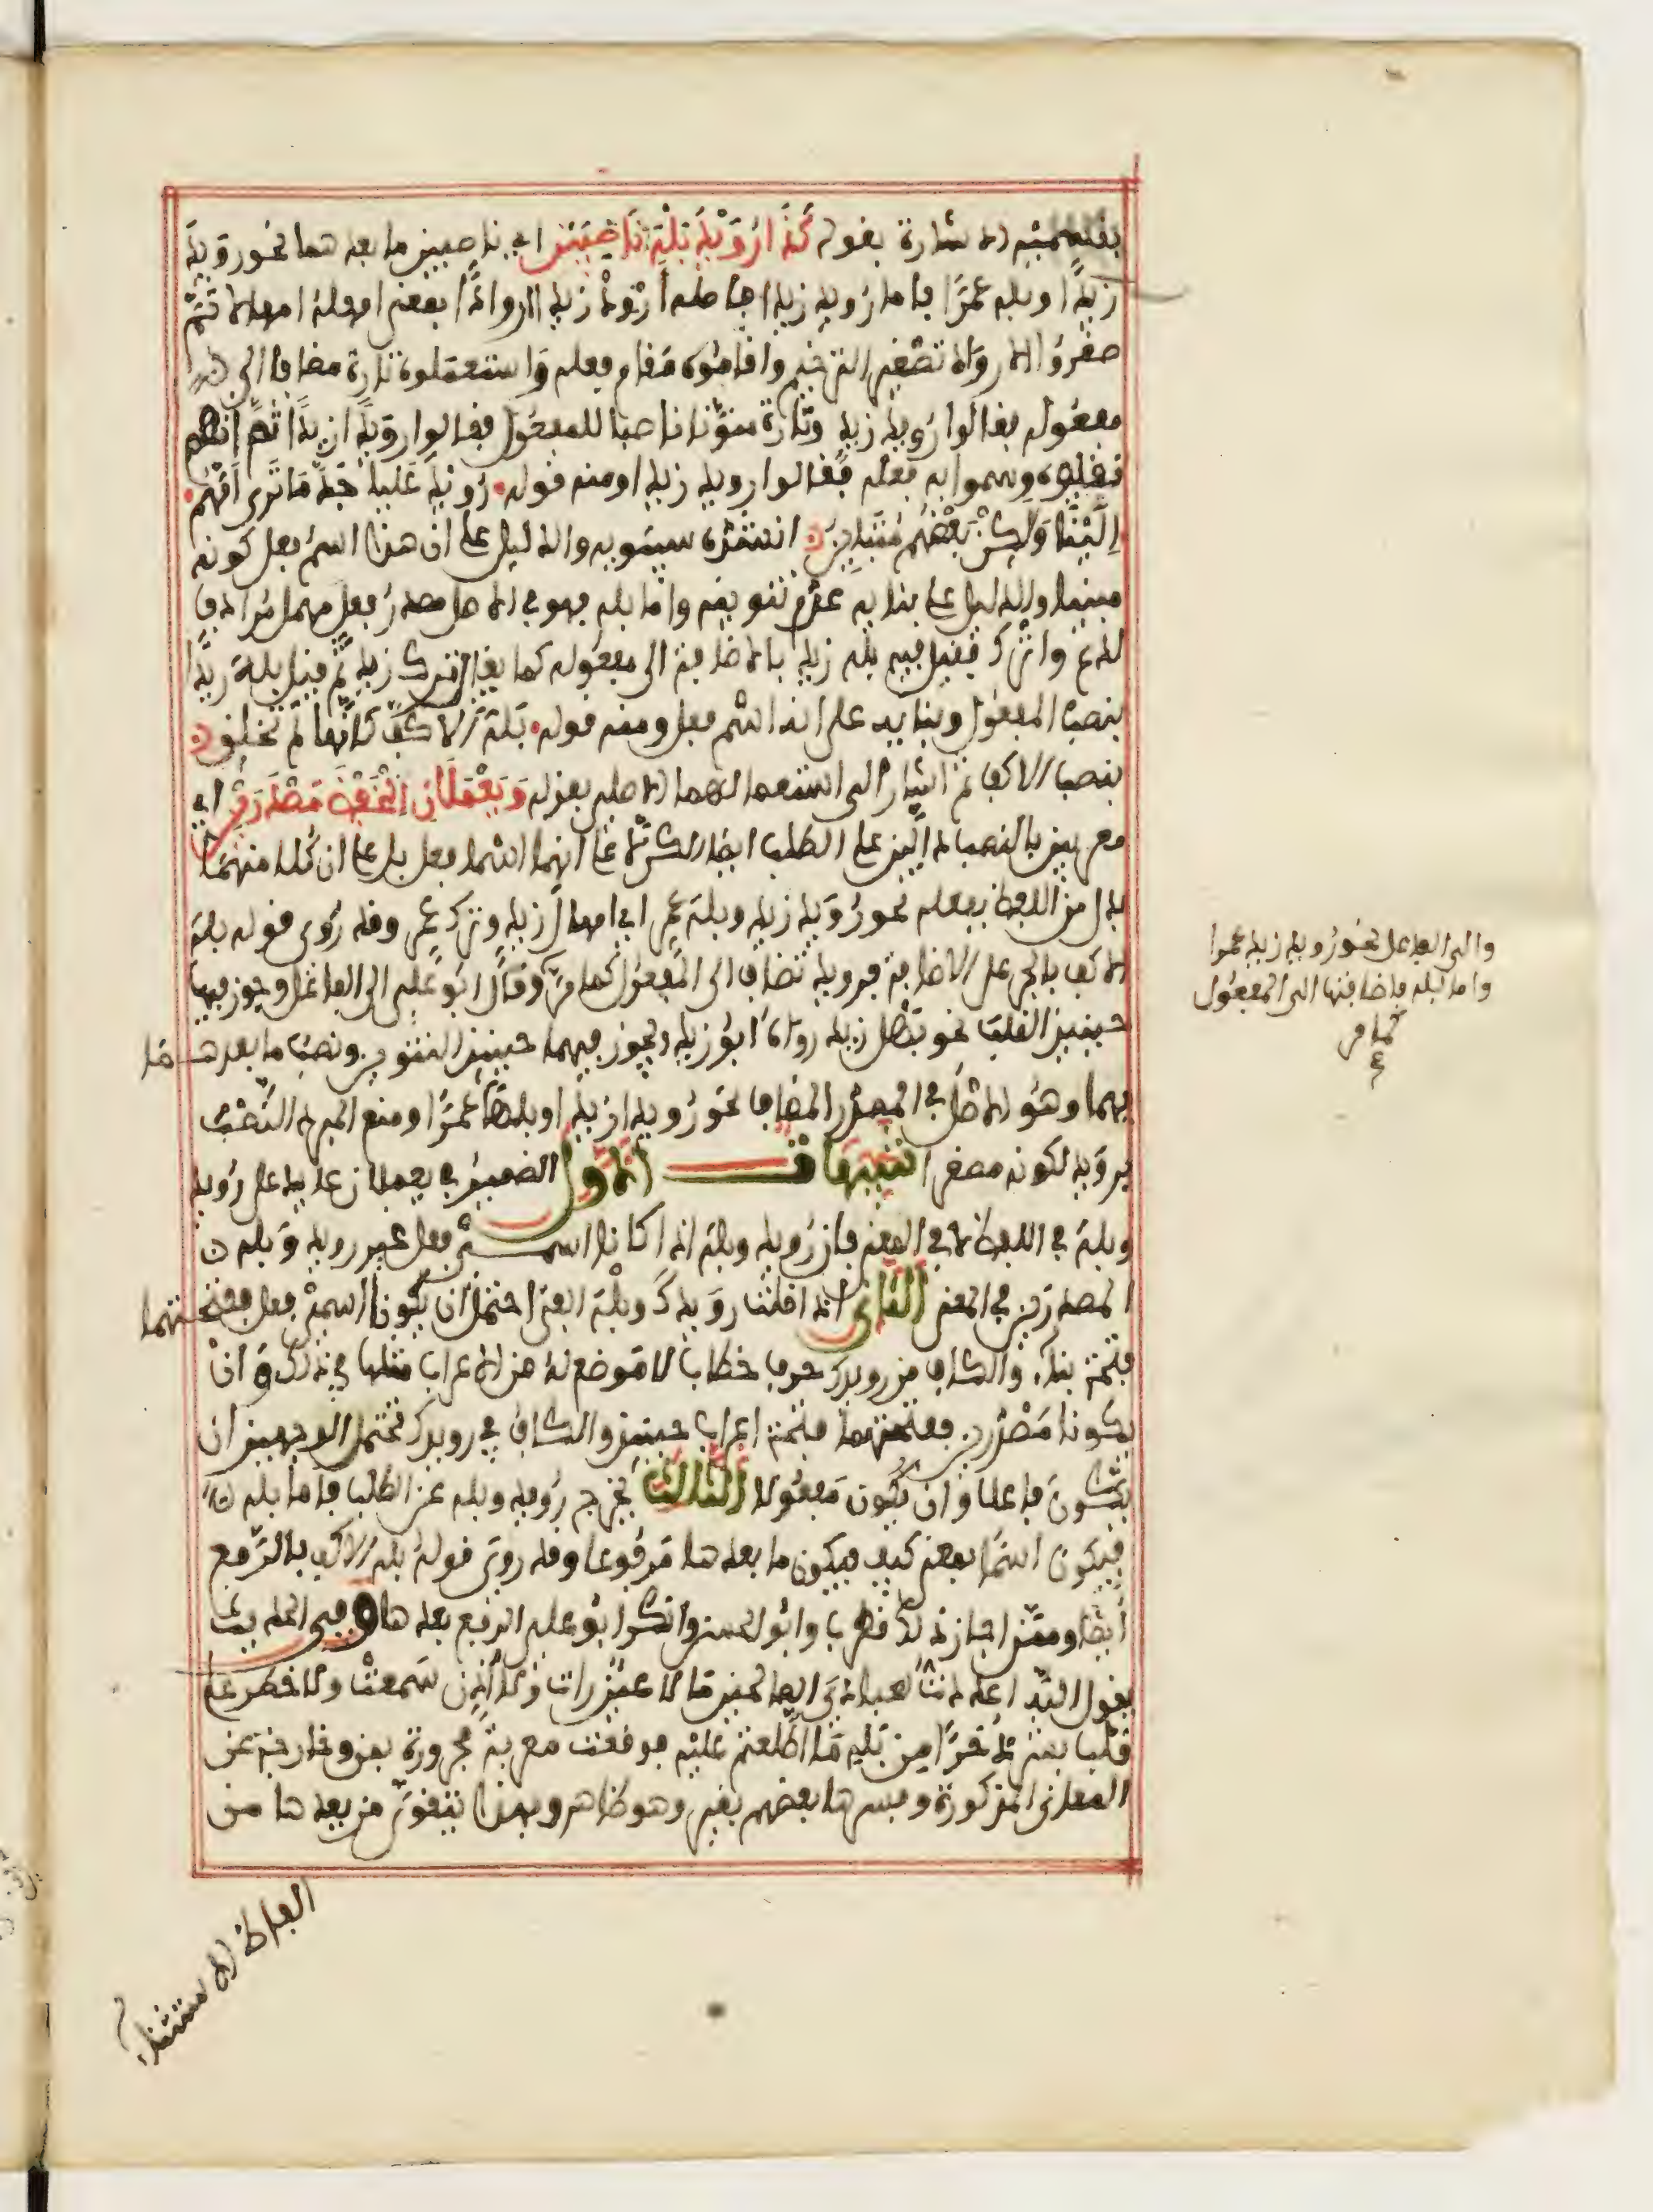 بقسميه الاشارة بقوله كَذَا رُوَيْدَ بَلْهَ نَاصِبَيْنِ اي ناصبين ما بعدهما نحو رويد
زيدا وبله عمرا فاما رويد زيدا فاصله أرود زيدا اروادا بمعنى امهله امهالا ثم
صغروا الارواد تصغير الترخيم واقاموه مقام فعله واستعملوه تارة مضافا الى
مفعوله فقالوا رويد زيد وتارة منونا ناصبا للمفعول فقالوا رويدا زيدا ثم انهم
نقلوه وسموا به فعله فقالوا رويد زيدا ومنه قوله رُوَيْدَ عَلِيًّا جُدَّ مَا ثَدْيُ أمِّهِمْ
إِلَيْنَا وَلَكِنْ بَعْضُهُمْ مُتَمَايِنُ انشده سيبويه والدليل على ان هذا اسم فعل كونه
مبنيا والدليل على بنائه عدم تنوينه واما بله فهو في الاصل مصدر فعل مهمل مرادف
لدع واترك فقيل فيه بله زيد بالاضافة الى مفعوله كما يقال ترك زيد ثم قيل بله زيدا
بنصب المفعول وبنائه على انه اسم فعل ومنه قوله بَلْهَ الاكفَّ كَأَنَّهَا لَمْ تُخْلَقِ
بنصب الاكف ثم اشار الى استعمالهما الاصلي بقوله وَيَعْمَلَانِ الْخَفْضَ مَصْدَرَيْنِ اي
معربين بالنصب دالين على الطلب ايضا لكن لا على انهما اسما فعل بل على ان كلا منهما
بدل من اللفظ بفعله نحو رويد زيد وبله عمرو اي امهال زيد وترك عمرو وقد روي قوله بله
الاكف بالجر على الاضافة فرويد تضاف الى المفعول كما مر وقال ابو علي الى الفاعل ويجوز فيها
حينئذ القلب نحو بهل زيد رواه ابو زيد ويجوز فيهما حينئذ التنوين ونصب ما بعدهما
بهما وهو الاصل في المصدر المضاف نحو رويدا زيدا وبلها عمرا ومنع المبرد النصب
برويد لكونه مصغرا تنبيهات الاول الضمير في يعملان عائد على رويد
وبله في اللفظ لا في المعنى فان رويد وبله اذا كانا اسمي فعل غير رويد وبله
المصدرين في المعنى الثاني اذا قلت رويدك وبله الفتى احتمل ان يكونا اسمي فعل ففتحتهما
فتحة بناء والكاف من رويدك حرف خطاب لا موضع له من الاعراب مثلها في ذلك وان
يكونا مصدرين ففتحتهما فتحة اعراب حينئذ والكاف في رويدك تحتمل الوجهين ان
تكون فاعلا وان تكون مفعولا الثالث تخرج رويد وبله عن الطلب فاما بله
فيكون اسما بمعنى كيف فيكون ما بعدها مرفوعا وقد روي قوله بله الاكف بالرفع
ايضا وممن اجاز ذلك قطرب وابو الحسن وانكر ابو علي الرفع بعدها وفي الحديث
يقول الله اعددت لعبادي الصالحين ما لا عين رات ولا اذن سمعت ولا خطر على
قلب بشر ذخرا من بله ما اطلعتم عليه فوقعت معربة مجرورة بمن وخارجة عن
المعاني المذكورة وفسرها بعضهم بغير وهو ظاهر وبهذا يتقوى من يعدها من
الفاظ الاستثناء
والى الفاعل نحو رويد زيد عمرا
واما بله فاضافتها الى المفعول
كما مر